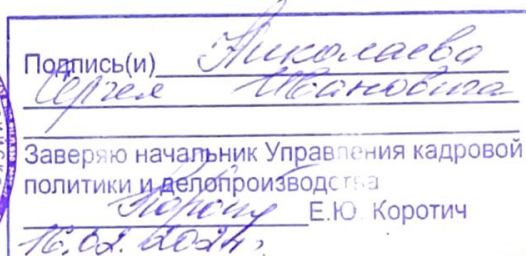 Подпись(и) Николаева
Сергея Ивановича
Заверяю начальник Управления кадровой
политики и делопроизводства
Е.Ю. Коротич
16.02.2024г.